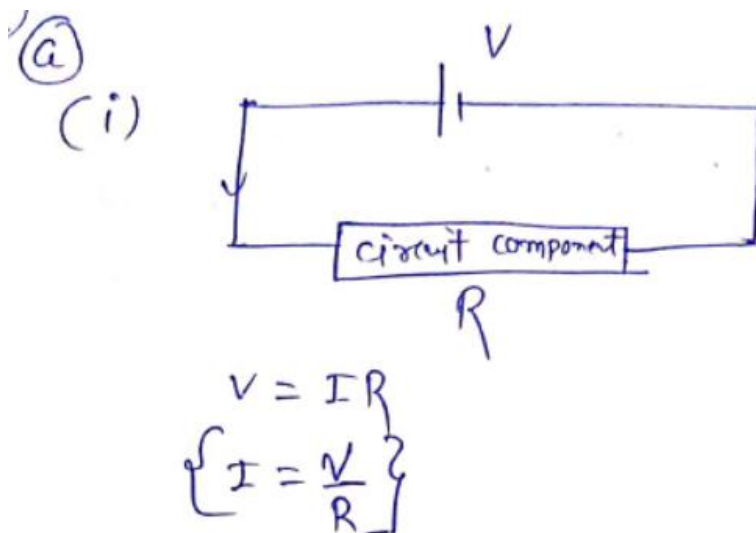 a
(i)
V
circuit component
R
V = IR
{ I = V/R }